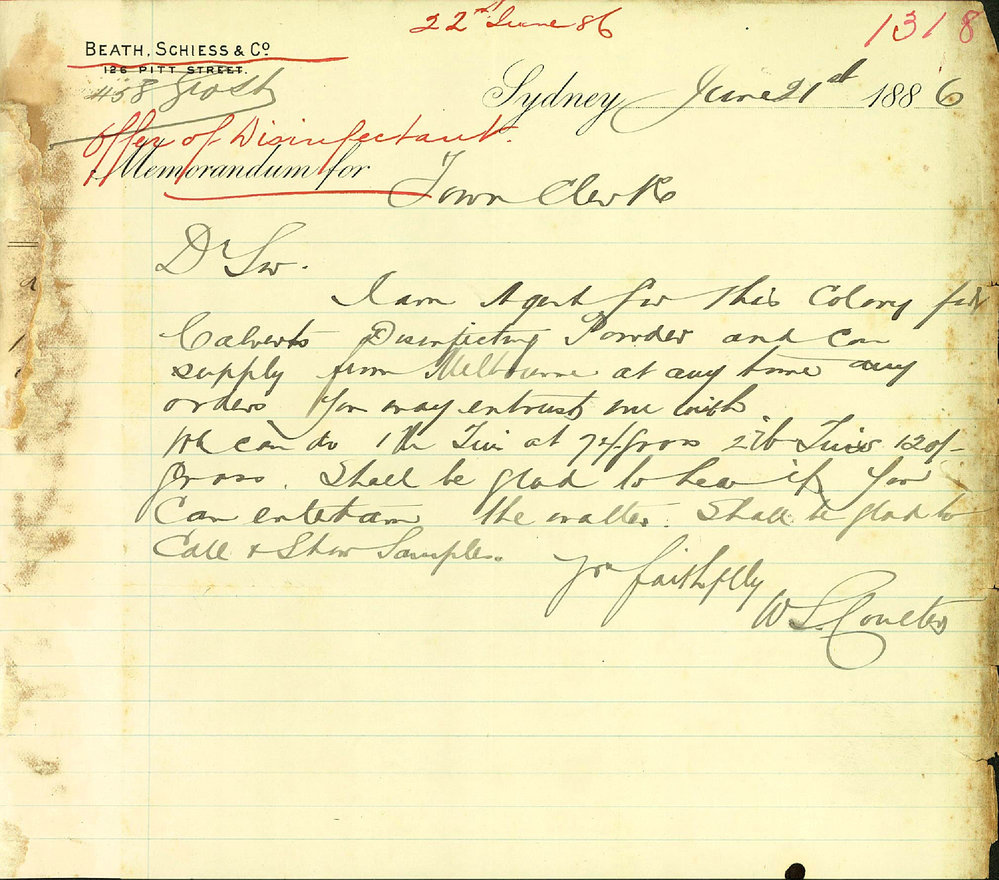 22nd June 86
1318
BEATH, SCHIESS & Co
126 PITT STREET.
458 Geo St
Sydney June 21st 1886
Offer of Disinfectant.
Memorandum for Town Clerk
Dr Sir.
I am Agent for this Colony for
Calverts Disinfecting Powder and can
supply from Melbourne at any time any
orders you may entrust me with.
We can do 1 lb Tins at 74/ gross 2 lb Tins 120/-
gross. Shall be glad to hear if you
can entertain the matter. Shall be glad to
Call & Show Samples.
Yrs faithfully
W S. Coulter